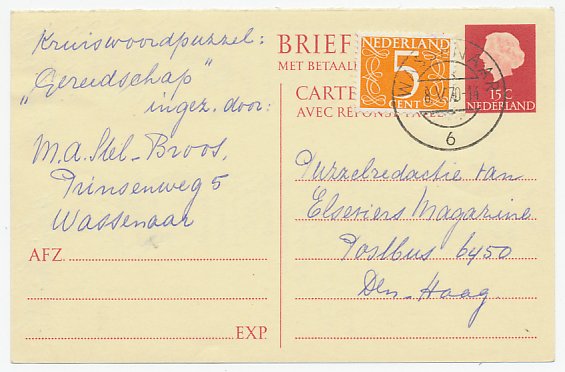 Kruiswoordpuzzel:
"Gereedschap"
ingez. door:
M.A. Stel-Broos,
Prinsenweg 5
Wassenaar
AFZ.
EXP.
BRIEF
MET BETAALD
CARTE
AVEC RÉPONSE
NEDERLAND
5
CENT
15 C
NEDERLAND
6
Puzzelredactie van
Elseviers Magazine
Postbus 6450
Den-Haag.